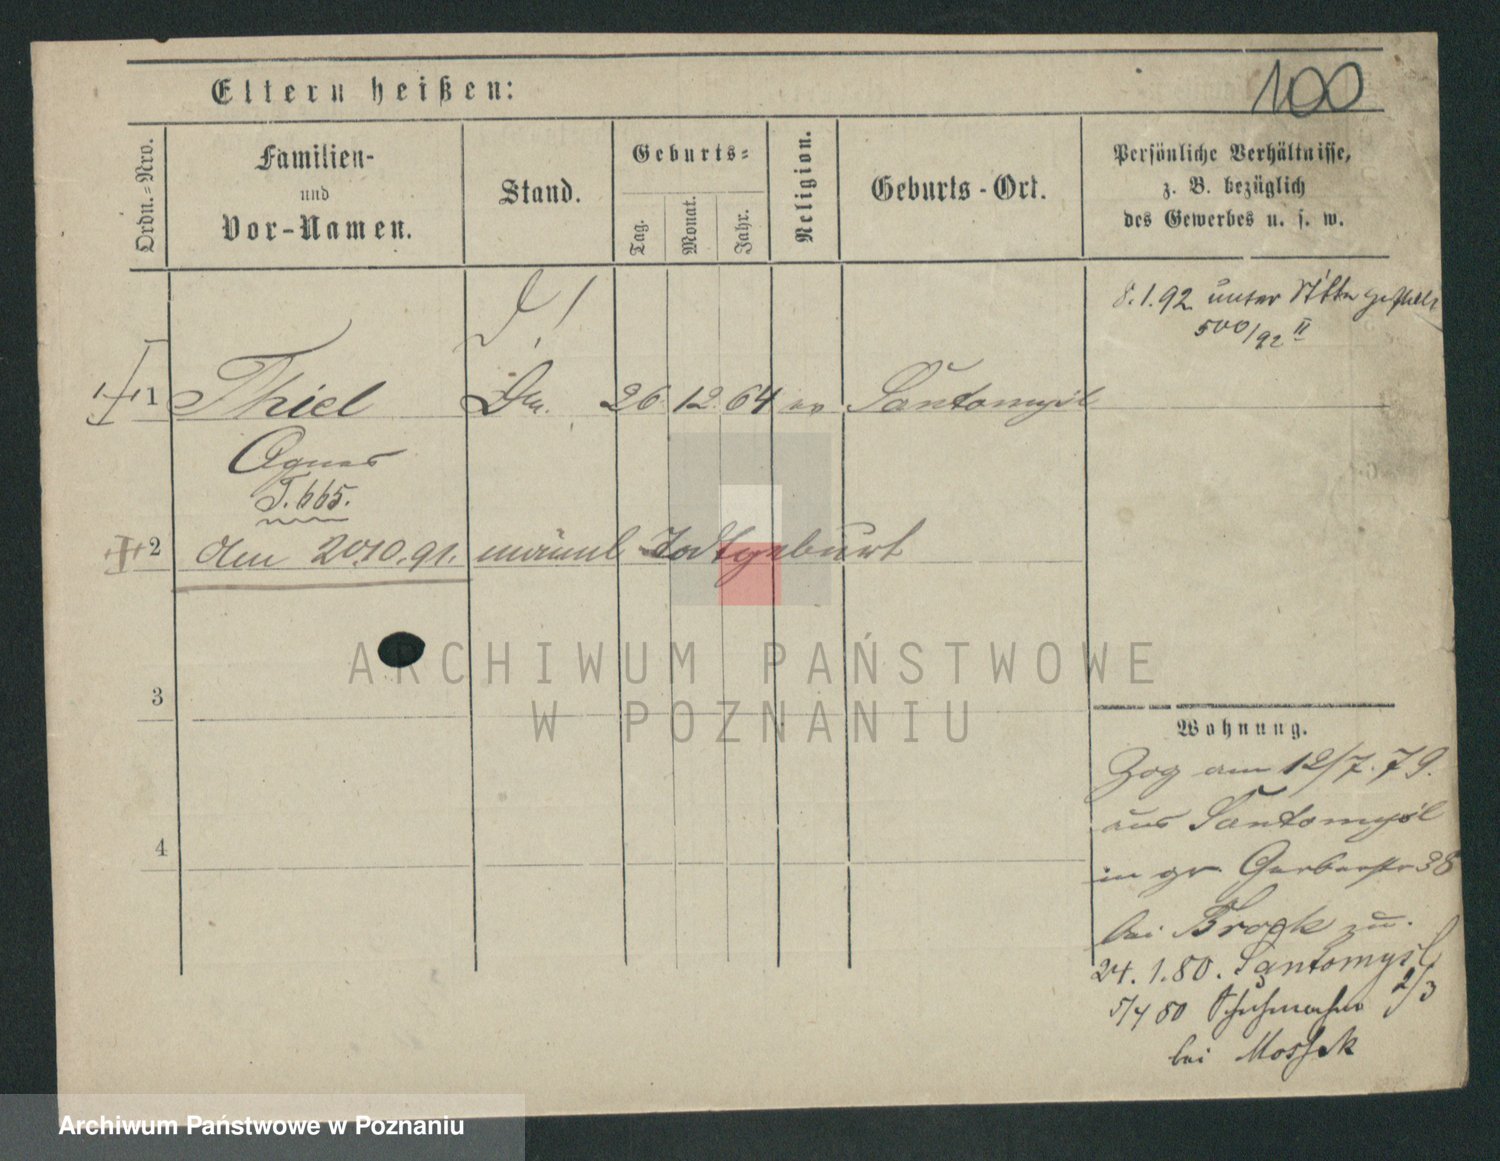 100
Eltern heißen:
Ordn.=Nro.
Familien-
und
Vor-Namen.
Stand.
Geburts=
Tag.
Monat.
Jahr.
Religion.
Geburts-Ort.
Persönliche Verhältnisse,
z. B. bezüglich
des Gewerbes u. s. w.
8.1.92 unter Sitte gestellt
500/92 II
1 Thiel 26 12 64 Santomysl
Agnes
T. 665.
2 Am 20.10.91. männl Todtgeburt
3
4
Wohnung.
Zog am 12/7.79.
aus Santomysl
in gr Gerberstr 38
bei Brock zu.
24.1.80. Santomysl
5/4 80 2/3
bei
ARCHIWUM PAŃSTWOWE
W POZNANIU
Archiwum Państwowe w Poznaniu